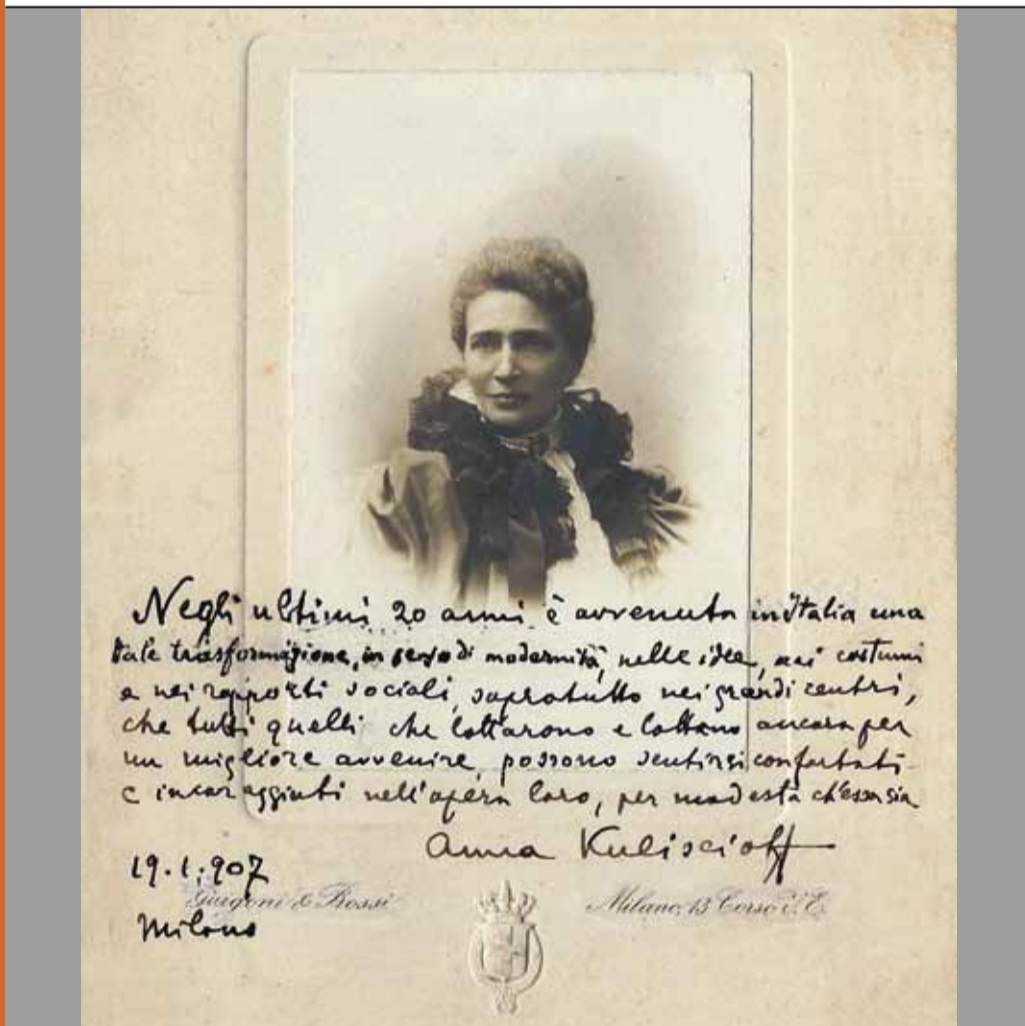 Negli ultimi 20 anni è avvenuta in Italia una
tale trasformazione, in senso di modernità, nelle idee, nei costumi
e nei rapporti sociali, sopratutto nei grandi centri,
che tutti quelli che lottarono e lottano ancora per
un migliore avvenire, possono sentirsi confortati
e incoraggiati nell'opera loro, per modesta ch'essa sia
Anna Kuliscioff
19.1.907
Guigoni & Bossi Milano, 13 Corso V.E.
Milano